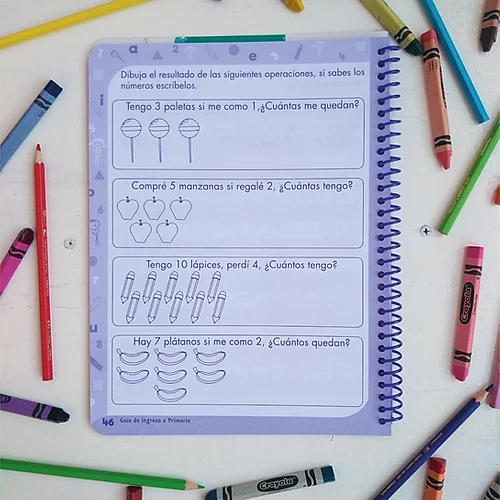 a 2 e 4
Dibuja el resultado de las siguientes operaciones, si sabes los
números escríbelos.
Tengo 3 paletas si me como 1,¿Cuántas me quedan?
Compré 5 manzanas si regalé 2, ¿Cuántas tengo?
Tengo 10 lápices, perdí 4, ¿Cuántos tengo?
Hay 7 plátanos si me como 2, ¿Cuántos quedan?
46 Guía de ingreso a Primaria
Crayola
Crayola